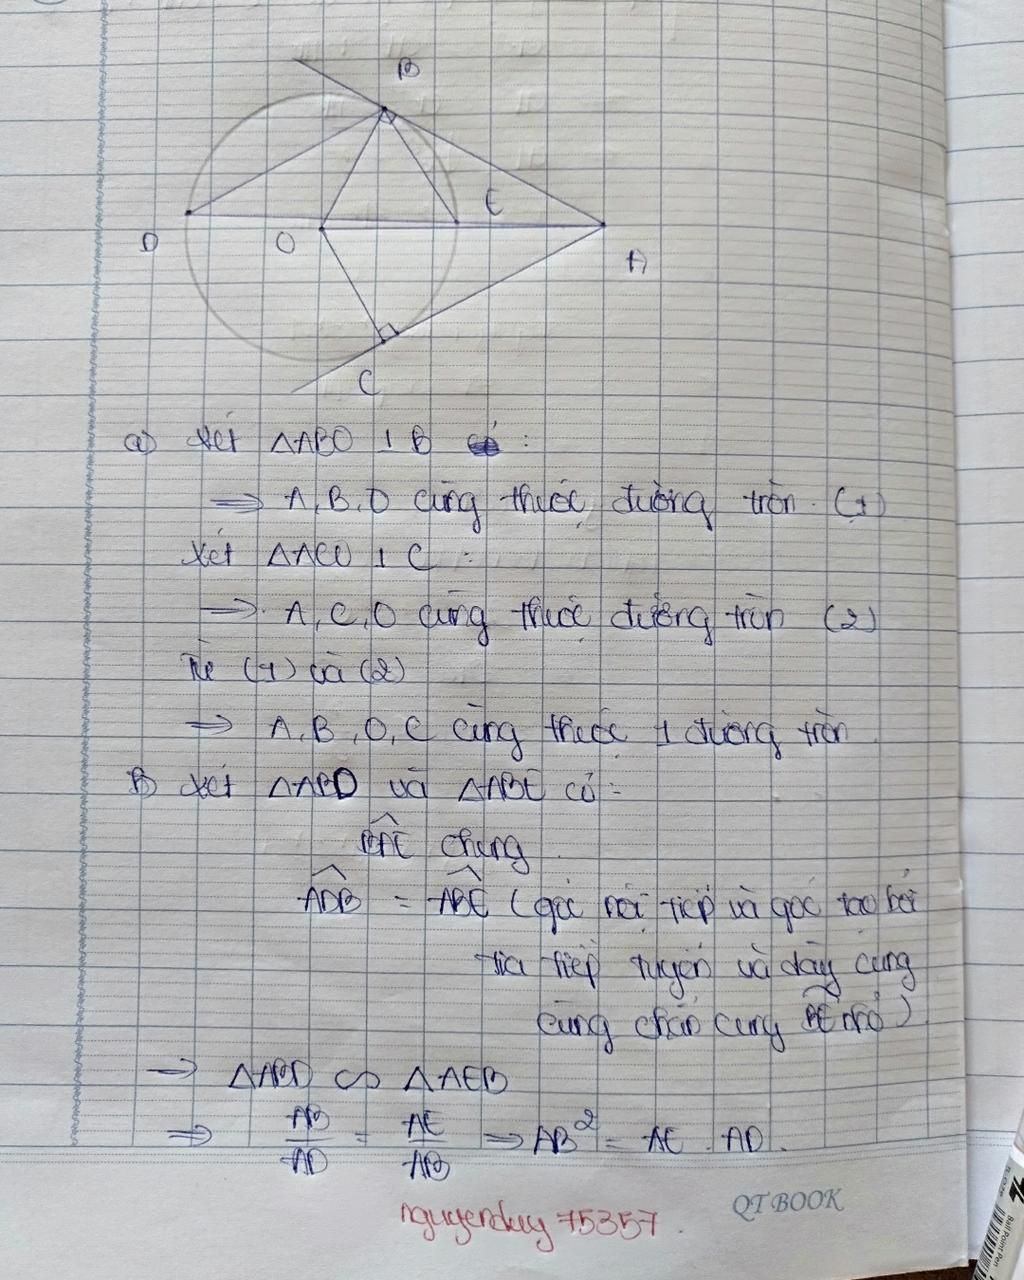 B
E
D
O
A
C
a) Xét △ABO ⊥ B có :
⟹ A, B, O cùng thuộc đường tròn (1)
Xét △ACO ⊥ C :
⟹ A, C, O cùng thuộc đường tròn (2)
Từ (1) và (2)
⟹ A, B, O, C cùng thuộc 1 đường tròn
B) Xét △ABD và △ABE có :
BAE chung
ADB = ABE (góc nội tiếp và góc tạo bởi
tia tiếp tuyến và dây cung
cùng chắn cung BE nhỏ)
⟹ △ABD ∽ △AEB
⟹ AB/AD = AE/AB ⟹ AB² = AE . AD.
nguyenduy 75357.
QT BOOK
Ball Point Pen